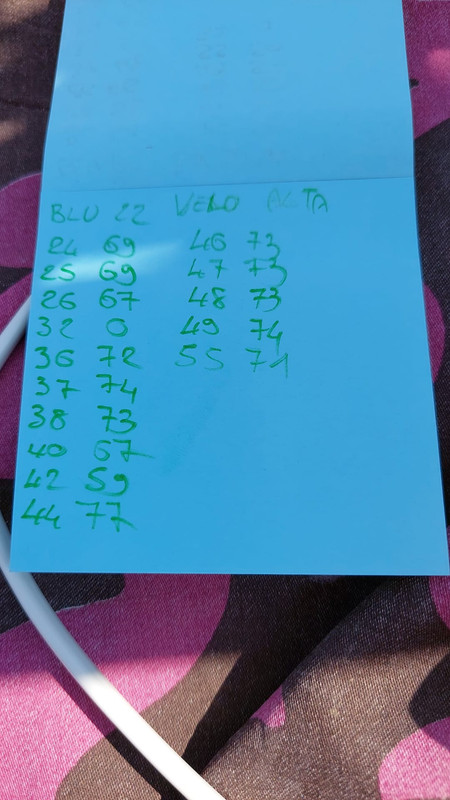 BLU 22 VELO ALTA
24 69 46 73
25 69 47 73
26 67 48 73
32 0 49 74
36 72 55 71
37 74
38 73
40 67
42 59
44 77